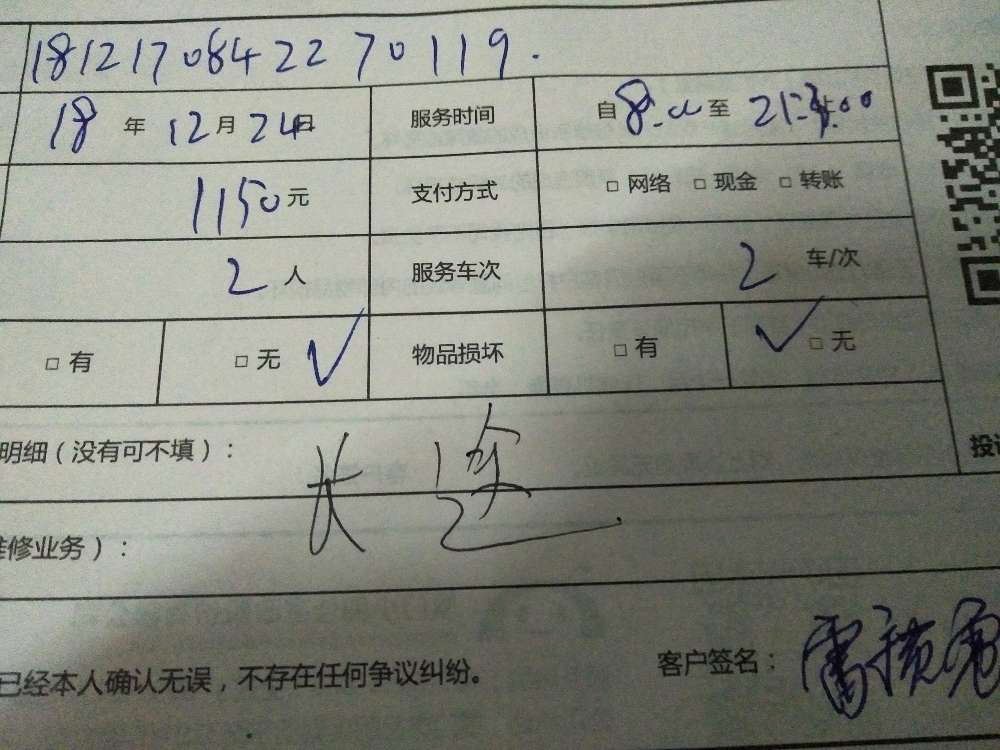 181217084227 0119.
18 年 12 月 24 日 服务时间 自 8:00 至 21:00
1150 元 支付方式 □ 网络 □ 现金 □ 转账
2 人 服务车次 2 车/次
□ 有 □ 无 √ 物品损坏 □ 有 √ □ 无
明细（没有可不填）：
长途
维修业务）：
已经本人确认无误，不存在任何争议纠纷。 客户签名：